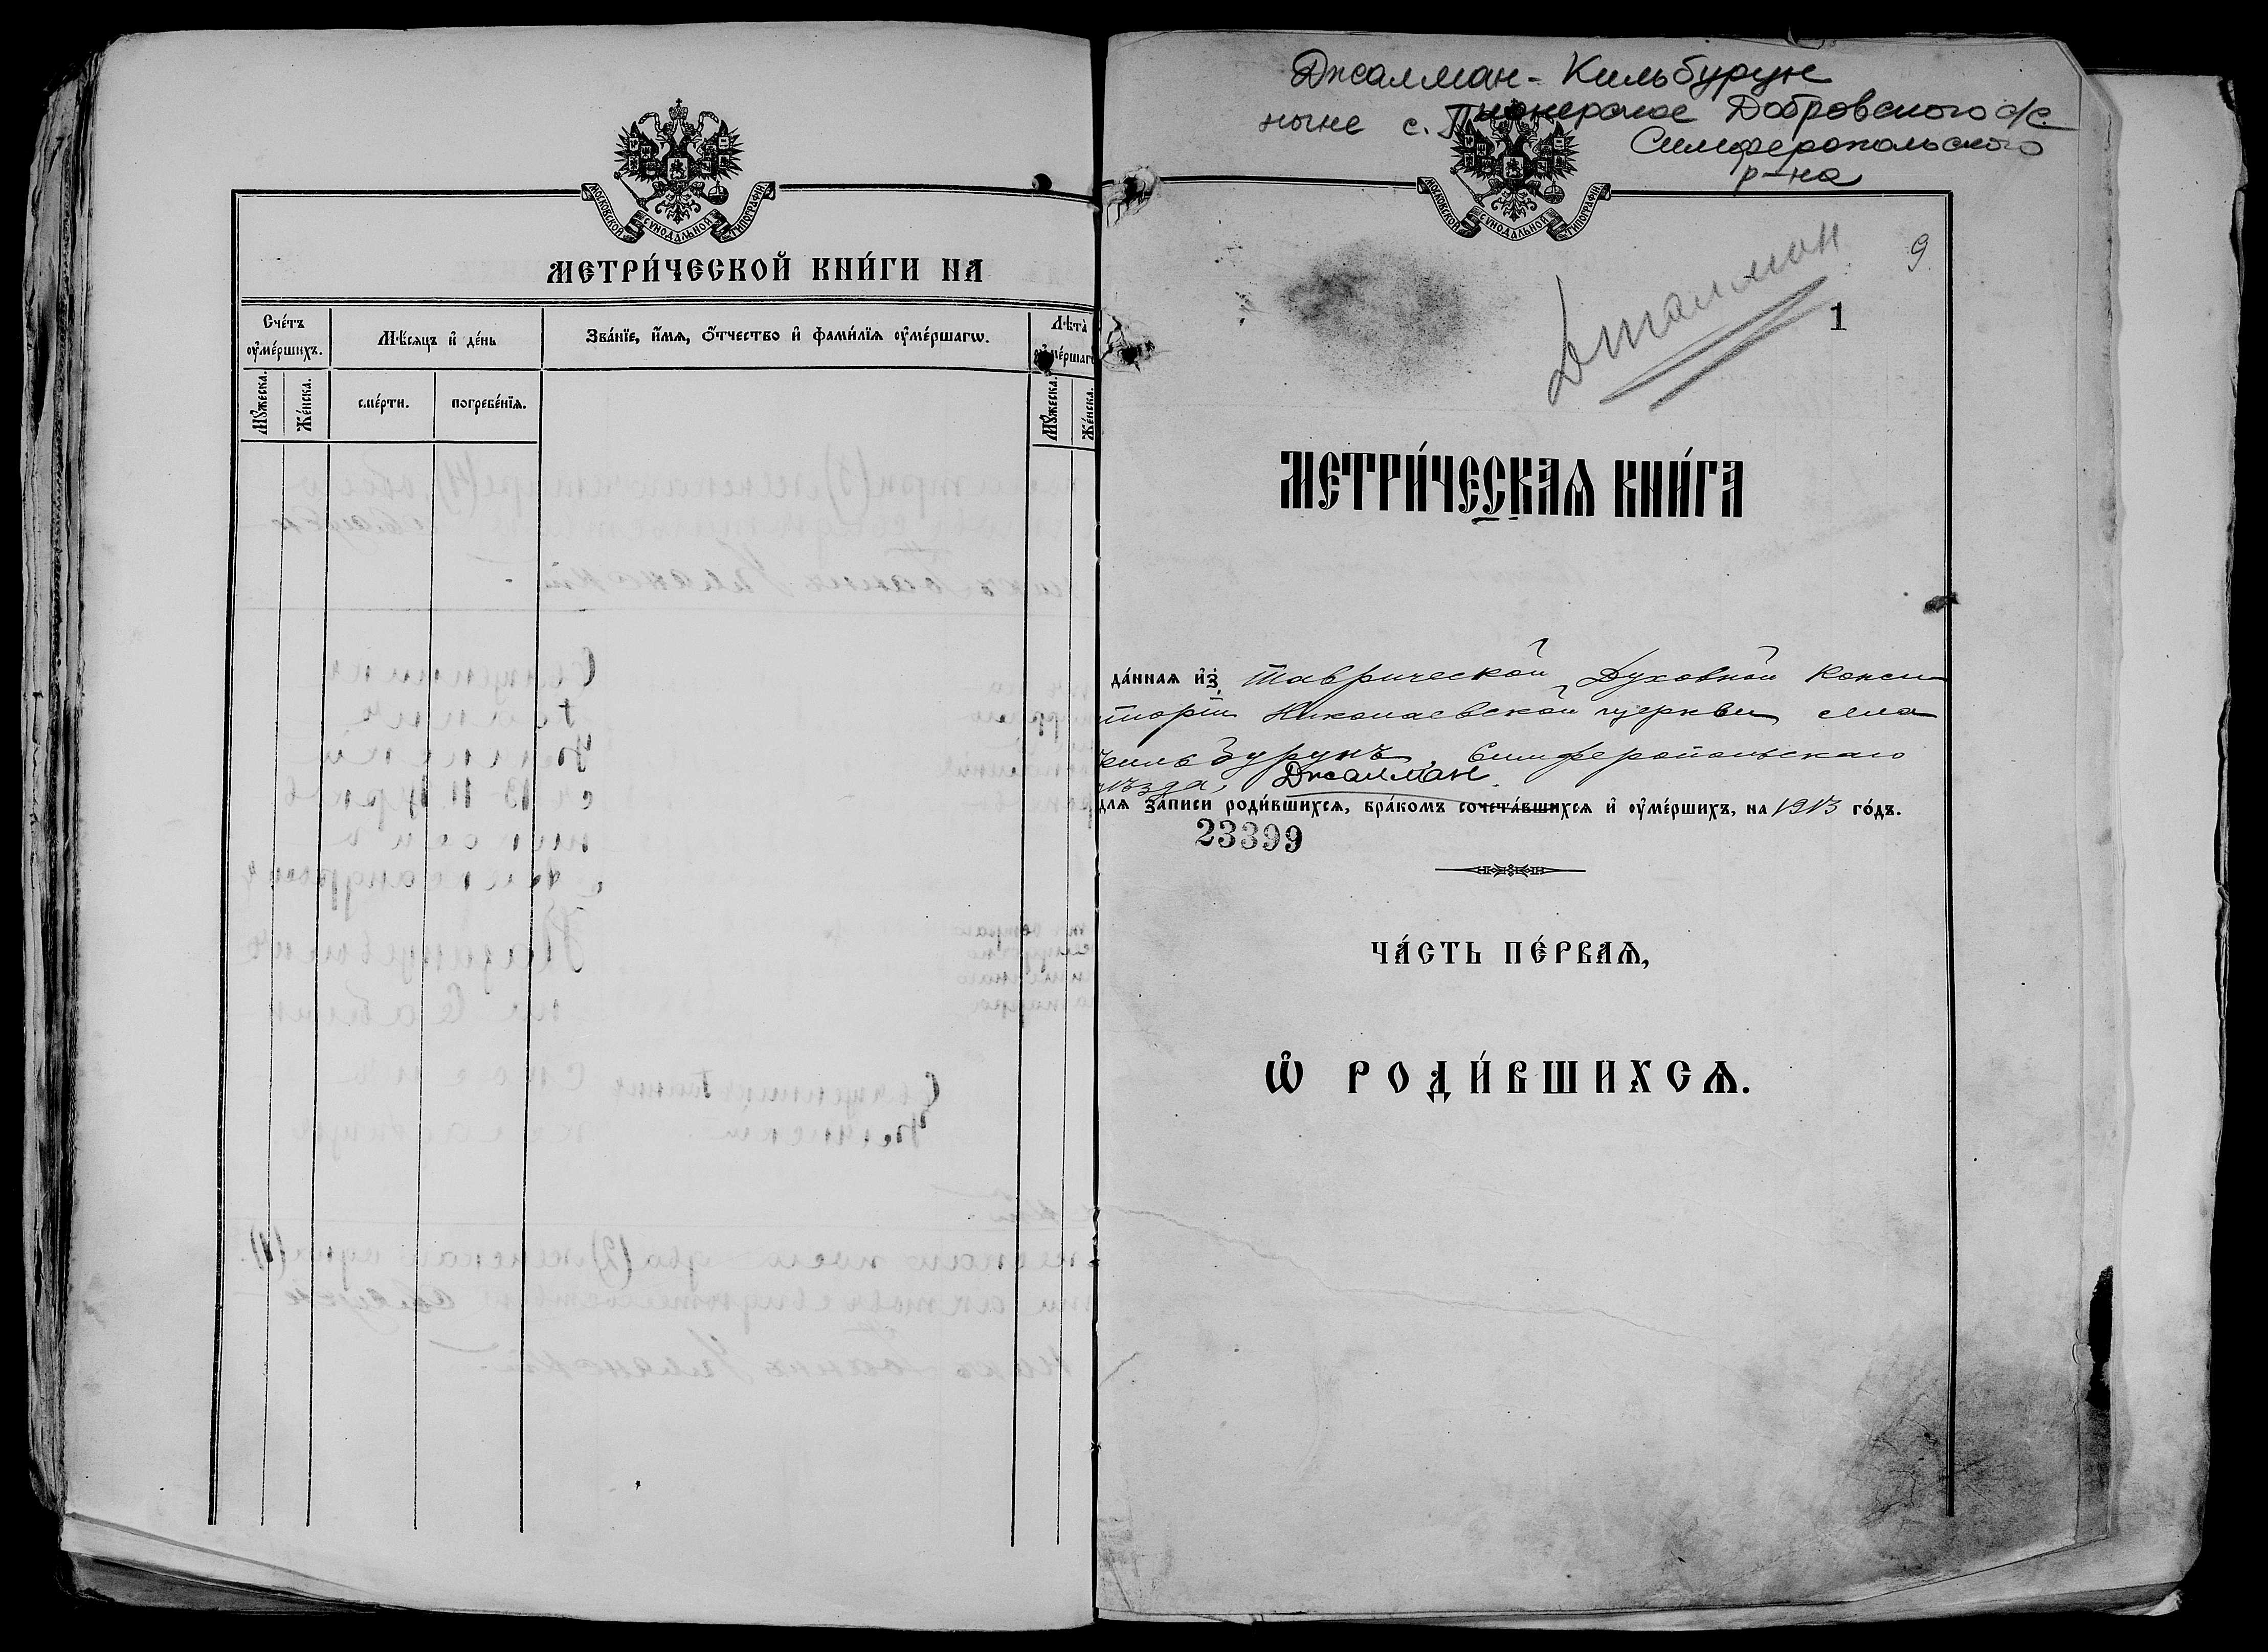 МОСКОВСКОЙ СѴНОДАЛЬНОЙ ТИПОГРАФІИ
МЕТРИ́ЧЕСКОЙ КНИ́ГИ НА
Сче́тъ оу҆ме́ршихъ.
Мѣ́сяцъ и҆ де́нь
Зва́нїе, и҆́мѧ, ѻ҆́тчество и҆ фами́лїѧ оу҆ме́ршагѡ.
Лѣта̀ оу҆ме́ршаг
Мꙋ́жеска.
Же́нска.
сме́рти.
погребе́нїѧ.
Мꙋ́жеска.
Же́нска.
Джалман-Кильбурун
ныне с. Пионерское Добровского с/с
Симферопольского
р-на
МОСКОВСКОЙ СѴНОДАЛЬНОЙ ТИПОГРАФІИ
Джалман
9
1
МЕТРИ́ЧЕСКАѦ КНИ́ГА
да́нная и҆з̾ Таврической Духовной Конси
торіи Николаевской церкви села
Кильбурунъ, Симферопольскаго
уѣзда, Джалман
для за́писи роди́вшихся, бра́комъ сочета́вшихся и҆ оу҆ме́ршихъ, на 1913 го́дъ.
23399
ЧА́СТЬ ПЕ́РВАѦ,
Ѡ҆ РОДИ́ВШИХСѦ.